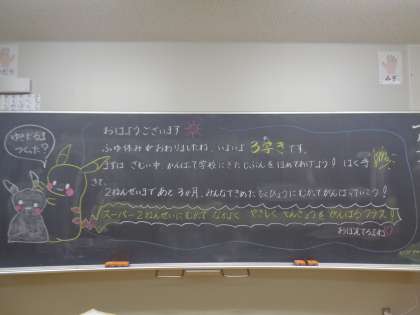 ゆきだるま
つくった?
おはようございます
ふゆ休みがおわりましたね。いよいよ 3学きです。
まずは さむい中、がんばって学校にきたじぶんをほめてあげよう! はく手
さて、
2ねんせいまで あと 3か月、みんなできめたもくひょうにむかってがんばっていこう!
スーパー2ねんせいにむかって なかよく やさしく てんこうを がんばろう クラス!
みぎ